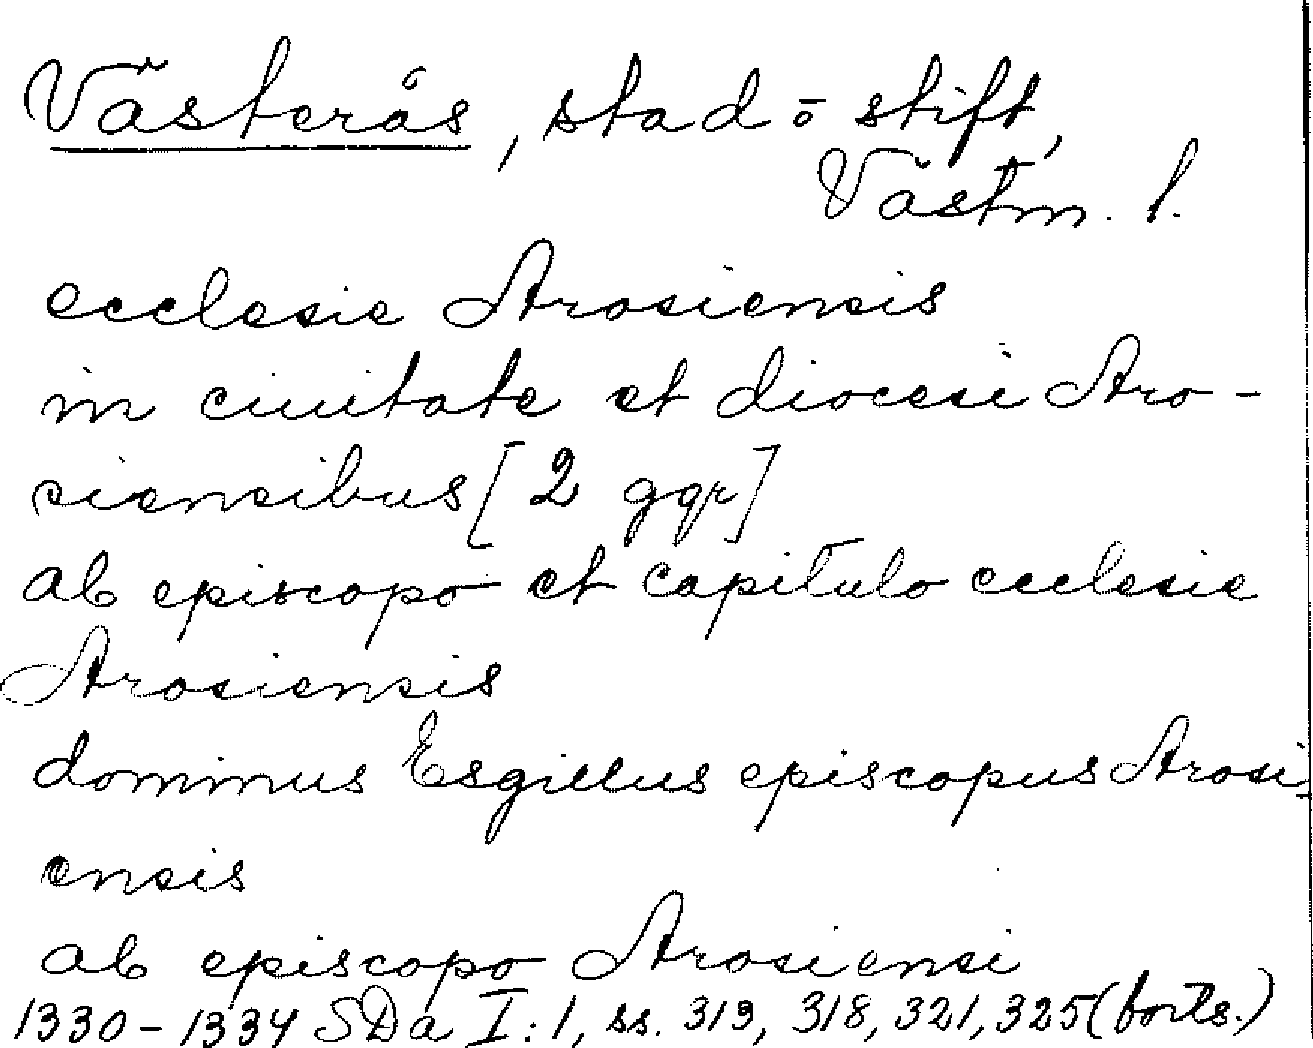 Västerås, stad ō stift,
Västm. l.
ecclesie Arosiensis
in ciuitate et diocesi Aro-
siensibus [2 ggr]
ab episcopo et capitulo ecclesie
Arosiensis
dominus Esgillus episcopus Arosi-
ensis
ab episcopo Arosiensi
1330-1334 SDa I:1, ss. 313, 318, 321, 325 (forts.)